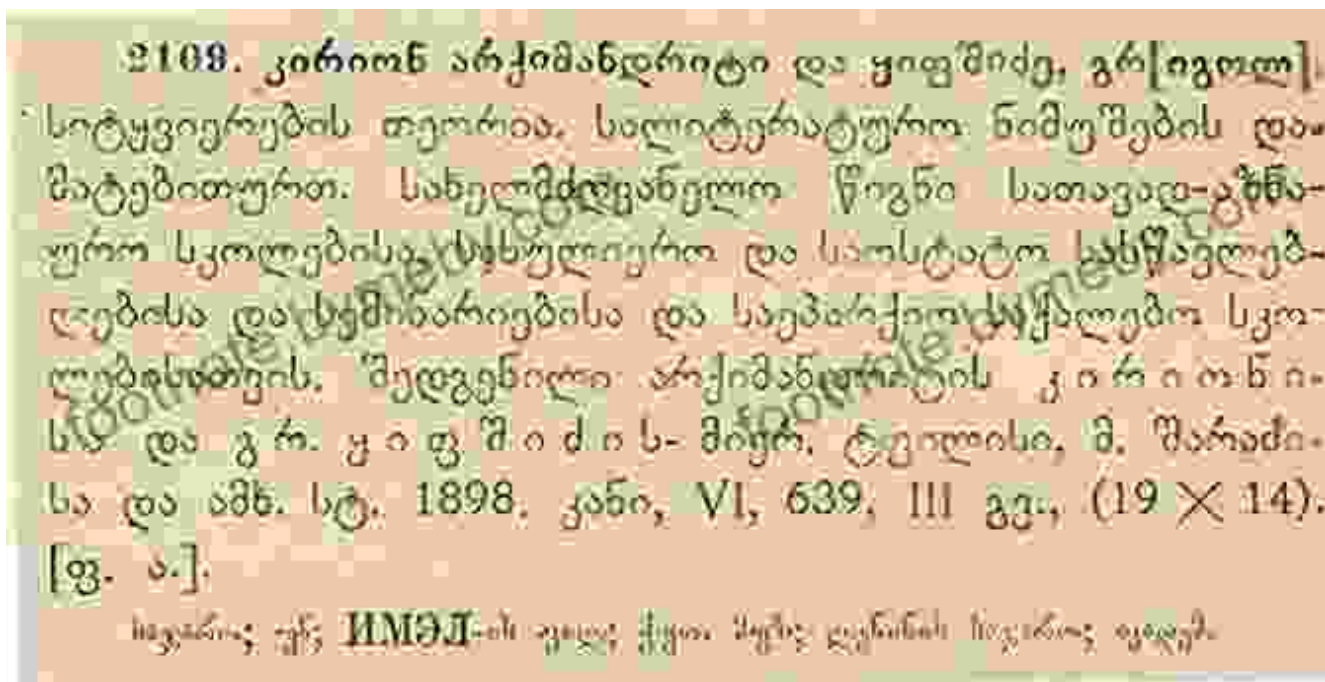 2109. კირიონ არქიმანდრიტი და ყიფშიძე, გრ[იგოლ].
სიტყვიერების თეორია. სალიტერატურო ნიმუშების და-
მატებითურთ. სახელმძღვანელო წიგნი სათავად-აზნა-
ურო სკოლებისა, სასულიერო და საოსტატო სასწავლებ-
ლებისა და სემინარიებისა და საეპარქიო საქალებო სკო-
ლებისათვის. შედგენილი არქიმანდრიტის კ ი რ ი ო ნ ი-
ს ა და გ რ. ყ ი ფ შ ი ძ ი ს- მიერ. ტფილისი, მ. შარაძი-
სა და ამხ. სტ. 1898. კანი, VI, 639, III გვ., (19 × 14).
[ფ. ა.].
ИМЭЛ-ის